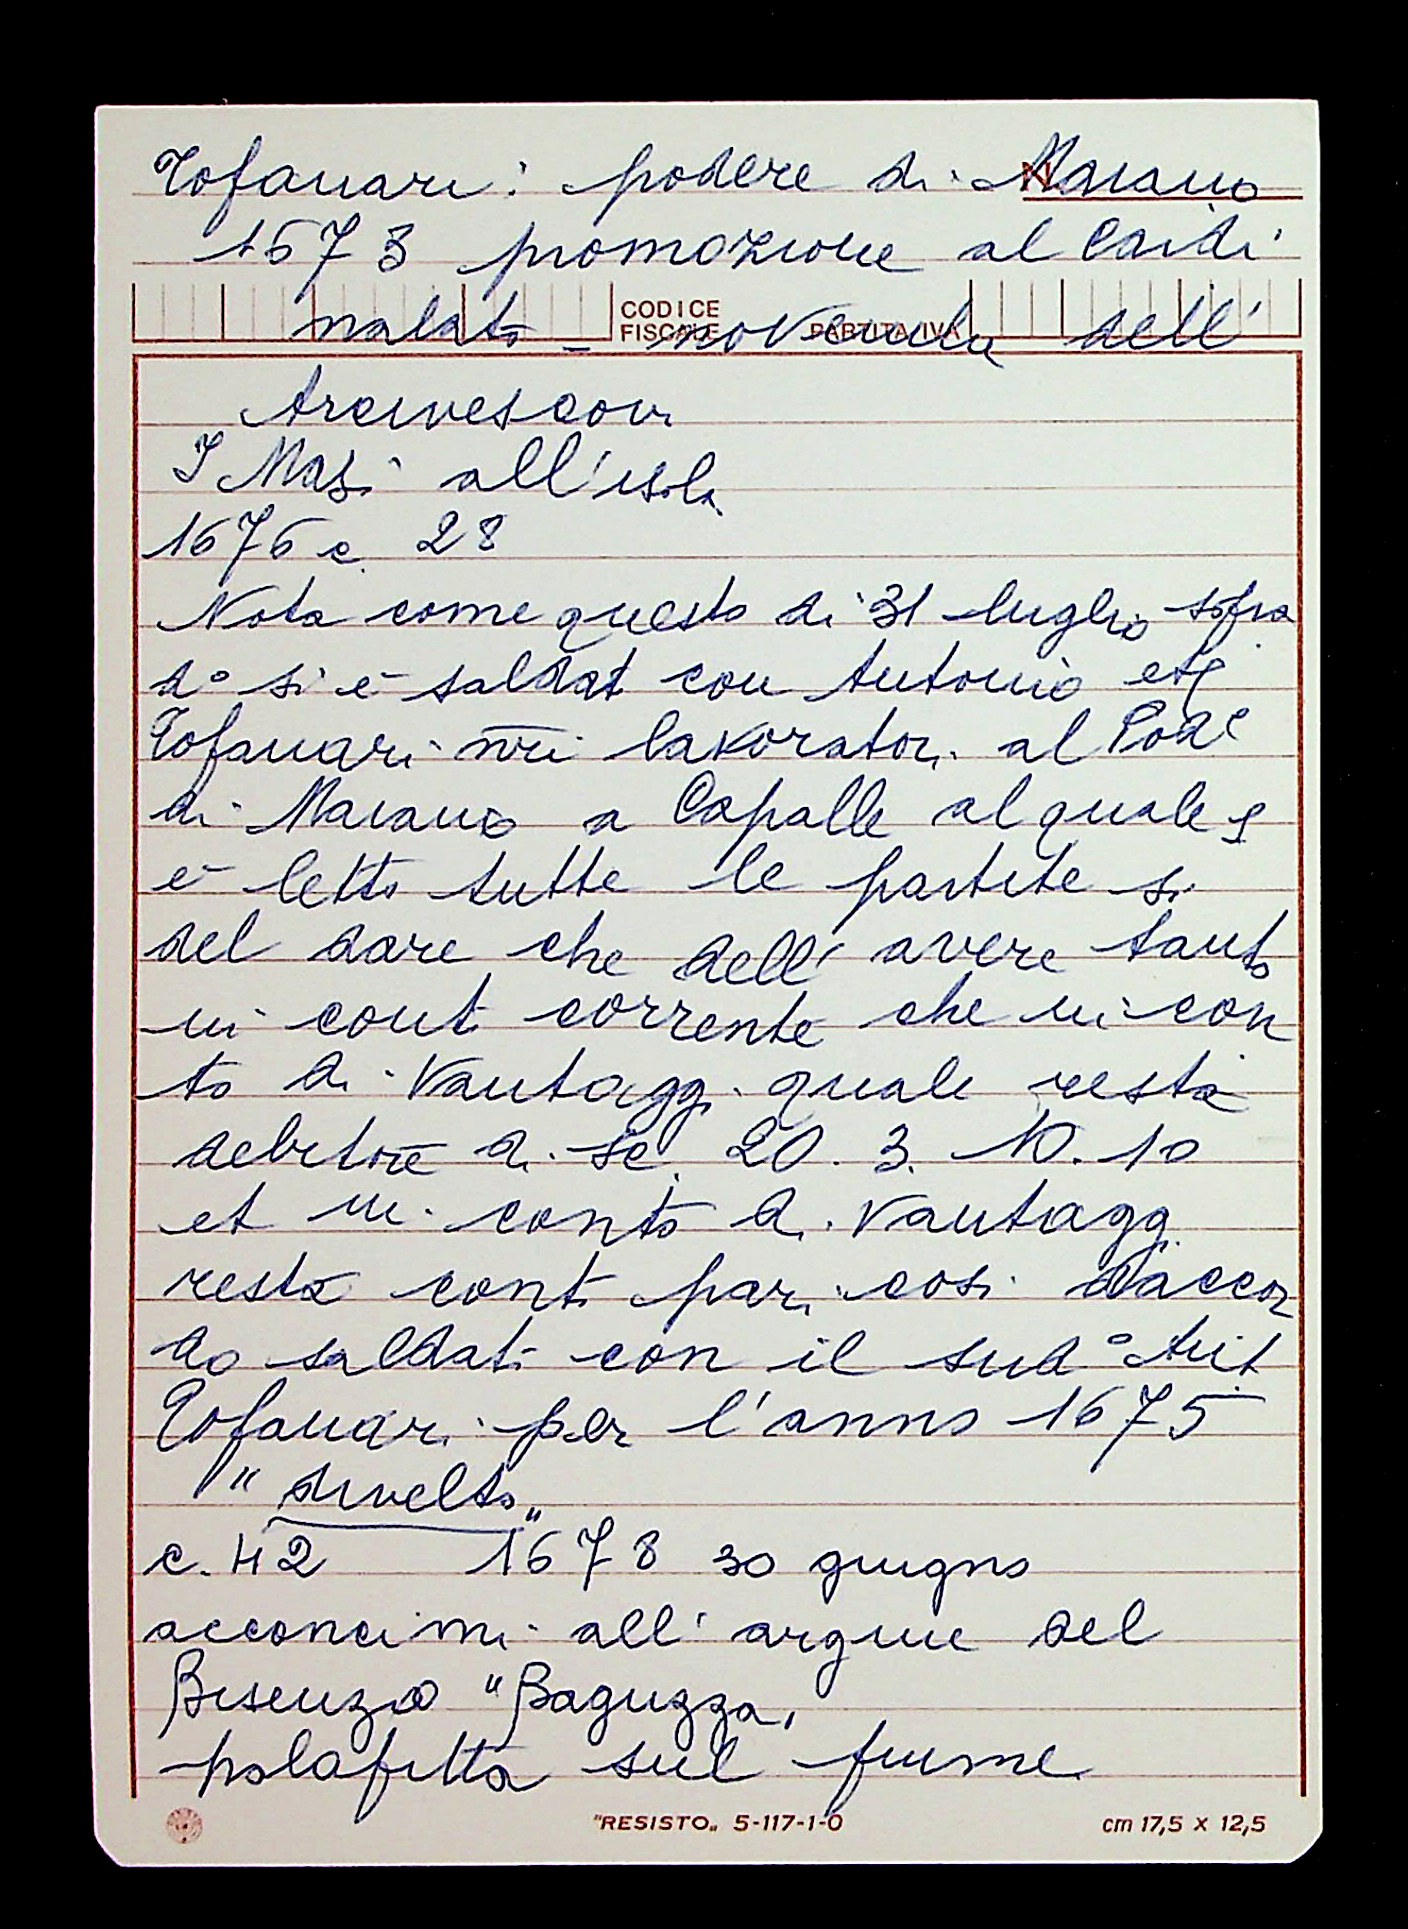 Tofanari: podere di Marano
1673 promozione al Cardi
CODICE
FISCALE
PARTITA IVA
nalato - novenula dell'
Arcivescovi
I Masi all'isola
1676 c. 28
Nota come questo dì 31 luglio sopra
d° si è saldat con Antonio et
Tofanari nri lavoratori al Pod.e
di Marano a Capalle al quale
è letto tutte le partite si
del dare che dell'avere tanto
in conto corrente che in con
to di Vantagg. quale resta
debitore di sc. 20. 3. 10. 10
et in conto di Vantagg.
resta conti pari così d'accor
do saldati con il sud° Ant
Tofanari per l'anno 1675
"divelto"
c. 42 1678 30 giugno
acconcimi all'argine del
Bisenzio "Baguzza"
palafitta sul fiume
"RESISTO" 5-117-1-0 cm 17,5 x 12,5